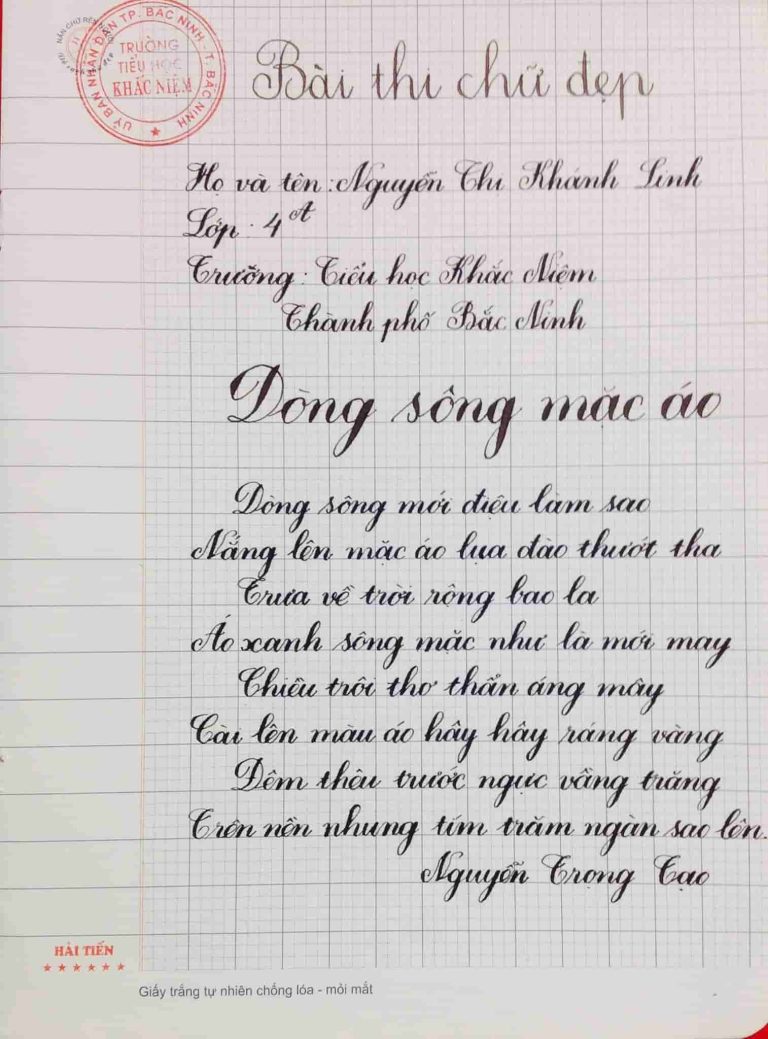 ỦY BAN NHÂN DÂN TP. BẮC NINH - T. BẮC NINH
TRƯỜNG
TIỂU HỌC
KHẮC NIỆM
Bài thi chữ đẹp
Họ và tên: Nguyễn Thị Khánh Linh
Lớp: 4A
Trường: Tiểu học Khắc Niệm
Thành phố Bắc Ninh
Dòng sông mặc áo
Dòng sông mới điệu làm sao
Nắng lên mặc áo lụa đào thướt tha
Trưa về trời rộng bao la
Áo xanh sông mặc như là mới may
Chiều trôi thơ thẩn áng mây
Cài lên màu áo hây hây ráng vàng
Đêm thêu trước ngực vầng trăng
Trên nền nhung tím trăm ngàn sao lên.
Nguyễn Trọng Tạo
HẢI TIẾN
Giấy trắng tự nhiên chống lóa - mỏi mắt